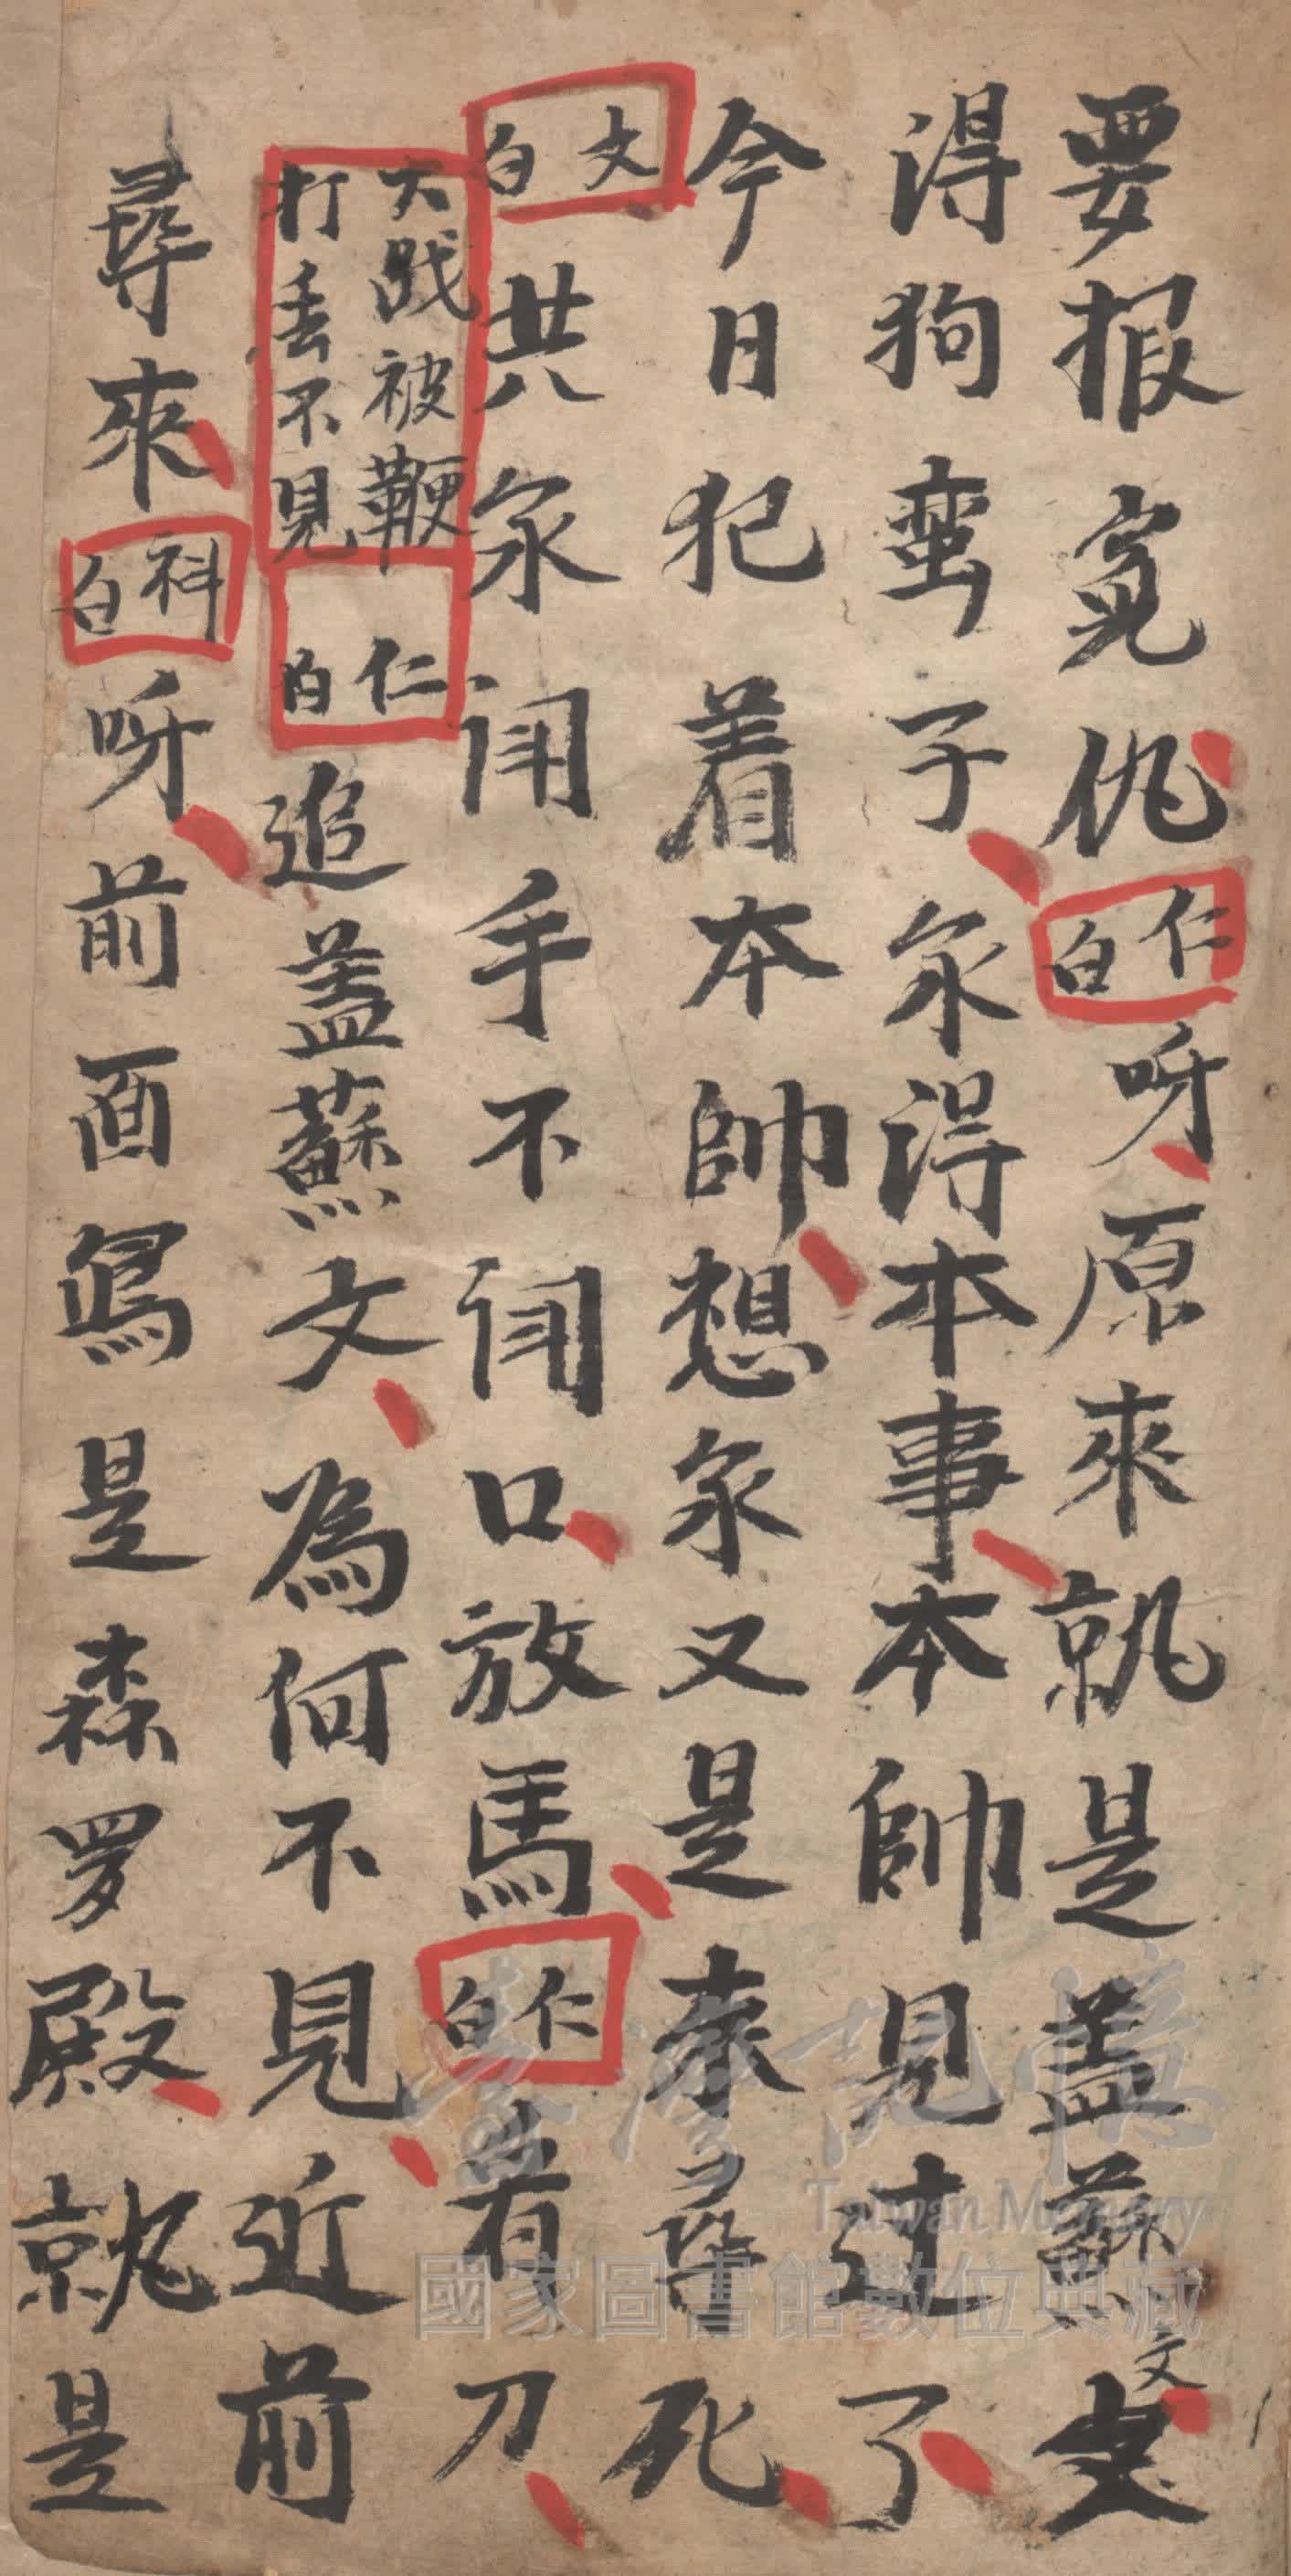 要报寃仇仁白呀原來就是盖蘇文
得狗蛮子尔得本事本帥見过了
今日犯着本帥想尔又是來尋死
文白共尔闭手不闭口放馬仁白看刀
大战被鞭打丢不見仁白追盖蘇文為何不見近前
尋來科白呀前面寫是森罗殿就是
臺灣記憶
Taiwan Memory
國家圖書館數位典藏